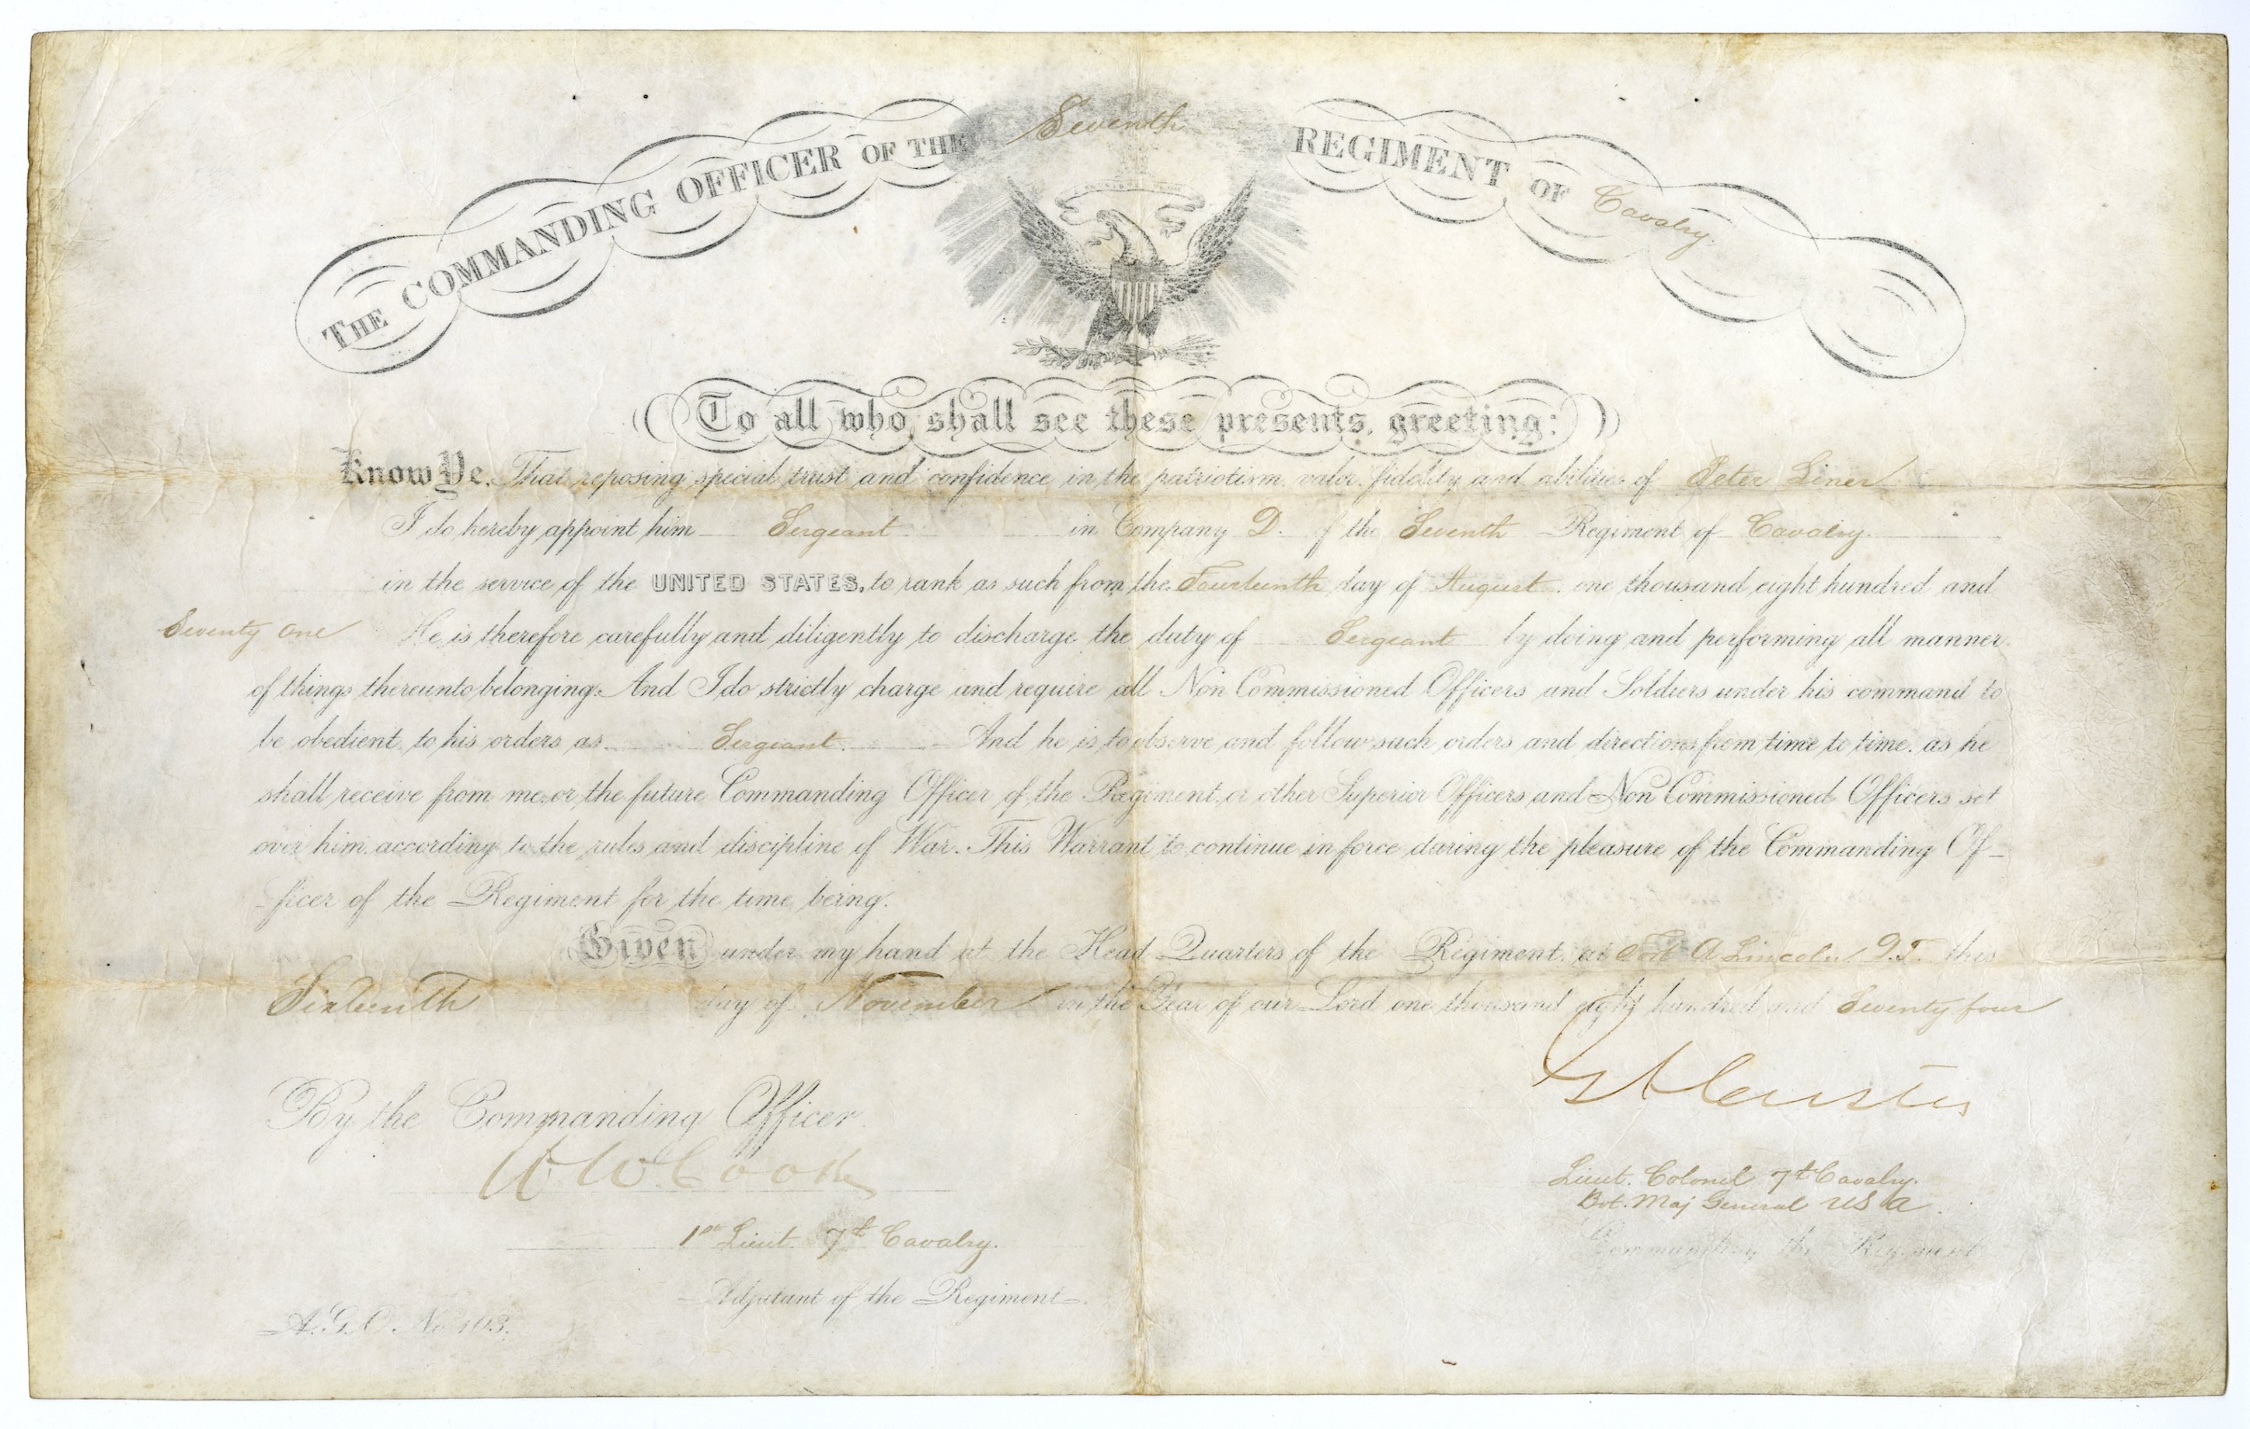 THE COMMANDING OFFICER OF THE Seventh REGIMENT OF Cavalry.
To all who shall see these presents, greeting:
Know Ye, That reposing special trust and confidence in the patriotism, valor, fidelity and abilities of Peter Liner
I do hereby appoint him Sergeant in Company D. of the Seventh Regiment of Cavalry
in the service of the UNITED STATES, to rank as such from the Fourteenth day of August one thousand eight hundred and
Seventy one He is therefore carefully and diligently to discharge the duty of Sergeant by doing and performing all manner
of things thereunto belonging. And I do strictly charge and require all Non Commissioned Officers and Soldiers under his command to
be obedient to his orders as Sergeant. And he is to observe and follow such orders and directions from time to time, as he
shall receive from me, or the future Commanding Officer of the Regiment, or other Superior Officers and Non Commissioned Officers set
over him, according to the rules and discipline of War. This Warrant to continue in force during the pleasure of the Commanding Of-
-ficer of the Regiment for the time being.
Given under my hand at the Head Quarters of the Regiment, at Fort A Lincoln D.T. this
Sixteenth day of November in the Year of our Lord one thousand eight hundred and Seventy four
G A Custer
By the Commanding Officer.
W W Cook
Lieut. Colonel 7th Cavalry.
Bvt. Maj General U S A.
1st Lieut. 7th Cavalry.
Commanding the Regiment
Adjutant of the Regiment.
A.G.O. No 103.